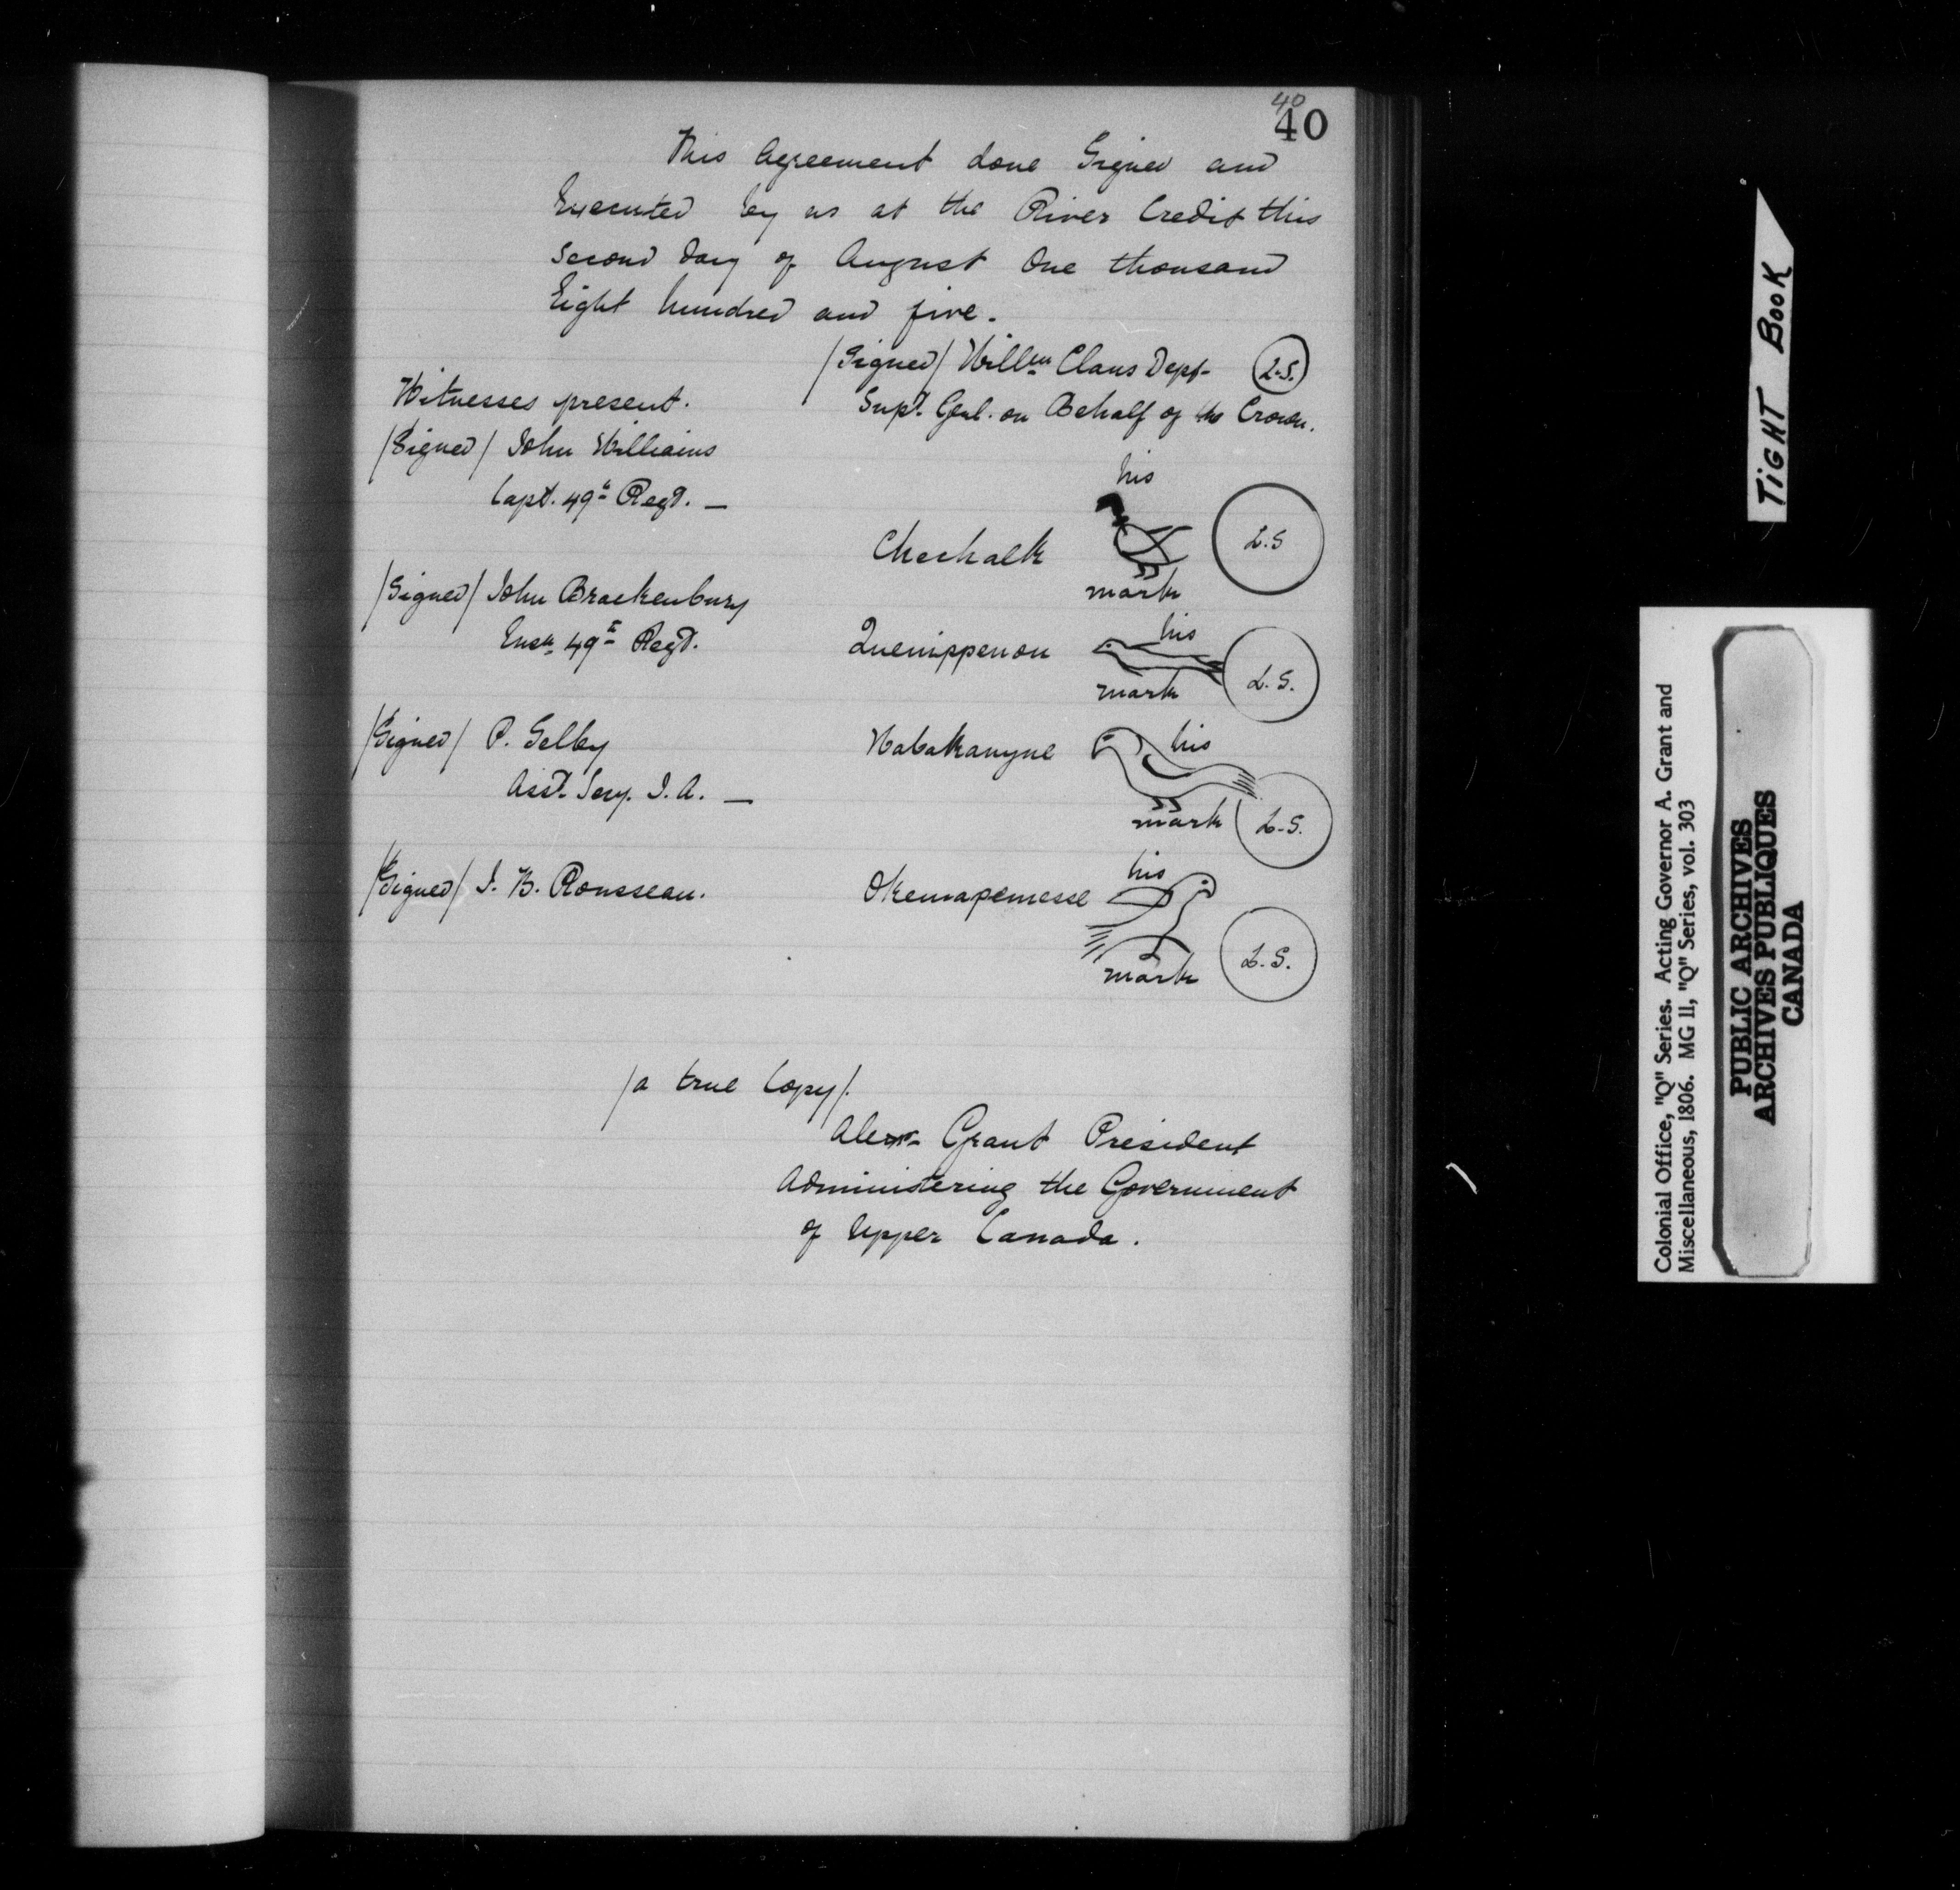 40
40
This Agreement done Signed and
Executed by us at the River Credit this
second day of August One thousand
Eight hundred and five.
/Signed/ Willm Claus Dept- L.S.
Supt. Genl. on Behalf of the Crown.
Witnesses present.
/Signed/ John Williams
Capt. 49th Regt. —
his
Chechalk L.S
mark
/Signed/ John Brackenbury
Ensn. 49th Regt.
his
Quenippenon L.S.
mark
/Signed/ P. Selby
Asst. Secy. I.A. —
his
Wabakanyne
mark L.S.
/Signed/ J. B. Rousseau.
his
Okemapemesse
mark L.S.
/a true Copy/.
Alexr. Grant President
Administering the Government
of Upper Canada.
TIGHT BOOK
Colonial Office, "Q" Series. Acting Governor A. Grant and
Miscellaneous, 1806. MG 11, "Q" Series, vol. 303
PUBLIC ARCHIVES
ARCHIVES PUBLIQUES
CANADA